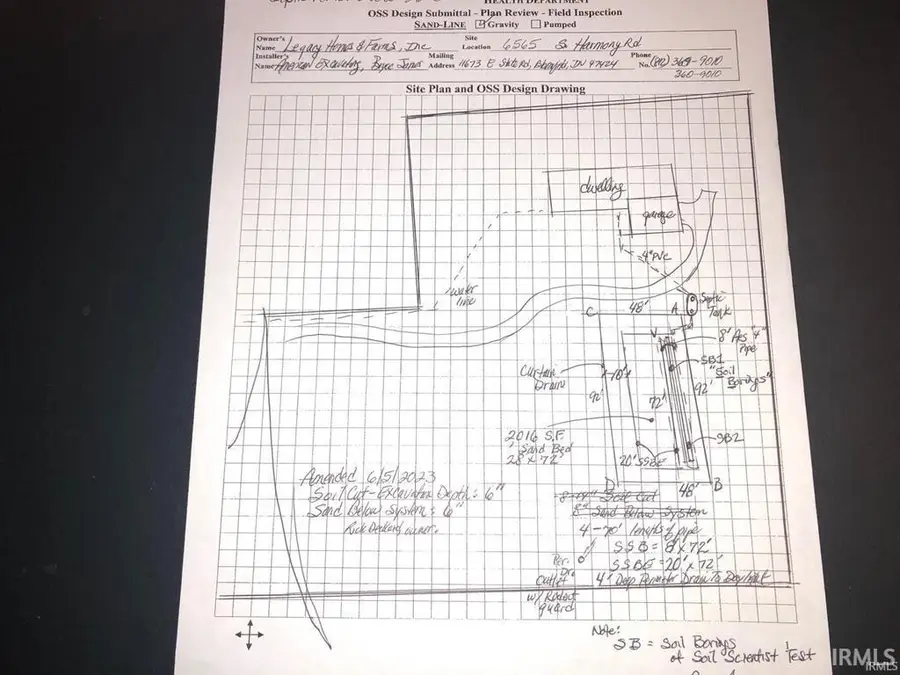 HEALTH DEPARTMENT
OSS Design Submittal - Plan Review - Field Inspection
SAND-LINE Gravity Pumped
Owner's Name Legacy Homes & Farms, Inc Site Location 6565 So Harmony Rd
Installer's Name American Excavating, Bryce Mailing Address 11673 E State Rd, IN 47424 Phone No. (812) 369-9010
360-9010
Site Plan and OSS Design Drawing
dwelling
garage
4" PVC
water line
Septic Tank
C 48' A
V
8' Abs "4" Pipe
SB1
"Soil Borings"
Curtain Drain
10'
92'
72'
92'
2016 S.F.
Sand Bed
28 x 72'
SB2
20' SSBE
D 48' B
Amended 6/5/2023
Soil Cut-Excavation Depth: 6"
Sand Below System: 6"
Rick Deckard owner.
Soil Cut
8" Sand Below System
4-70' lengths of pipe
SSB = 8' x 72'
SSBE = 20' x 72'
4' Deep Perimeter Drain To Daylight
Per. Dr. Outlet
w/ Rodent guard
Note:
SB = Soil Borings
of Soil Scientist Test
IRMLS
IRMLS